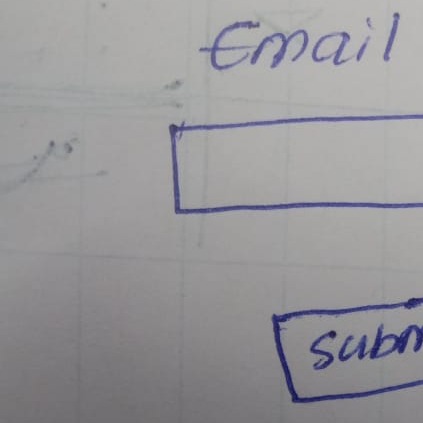 Email
subm